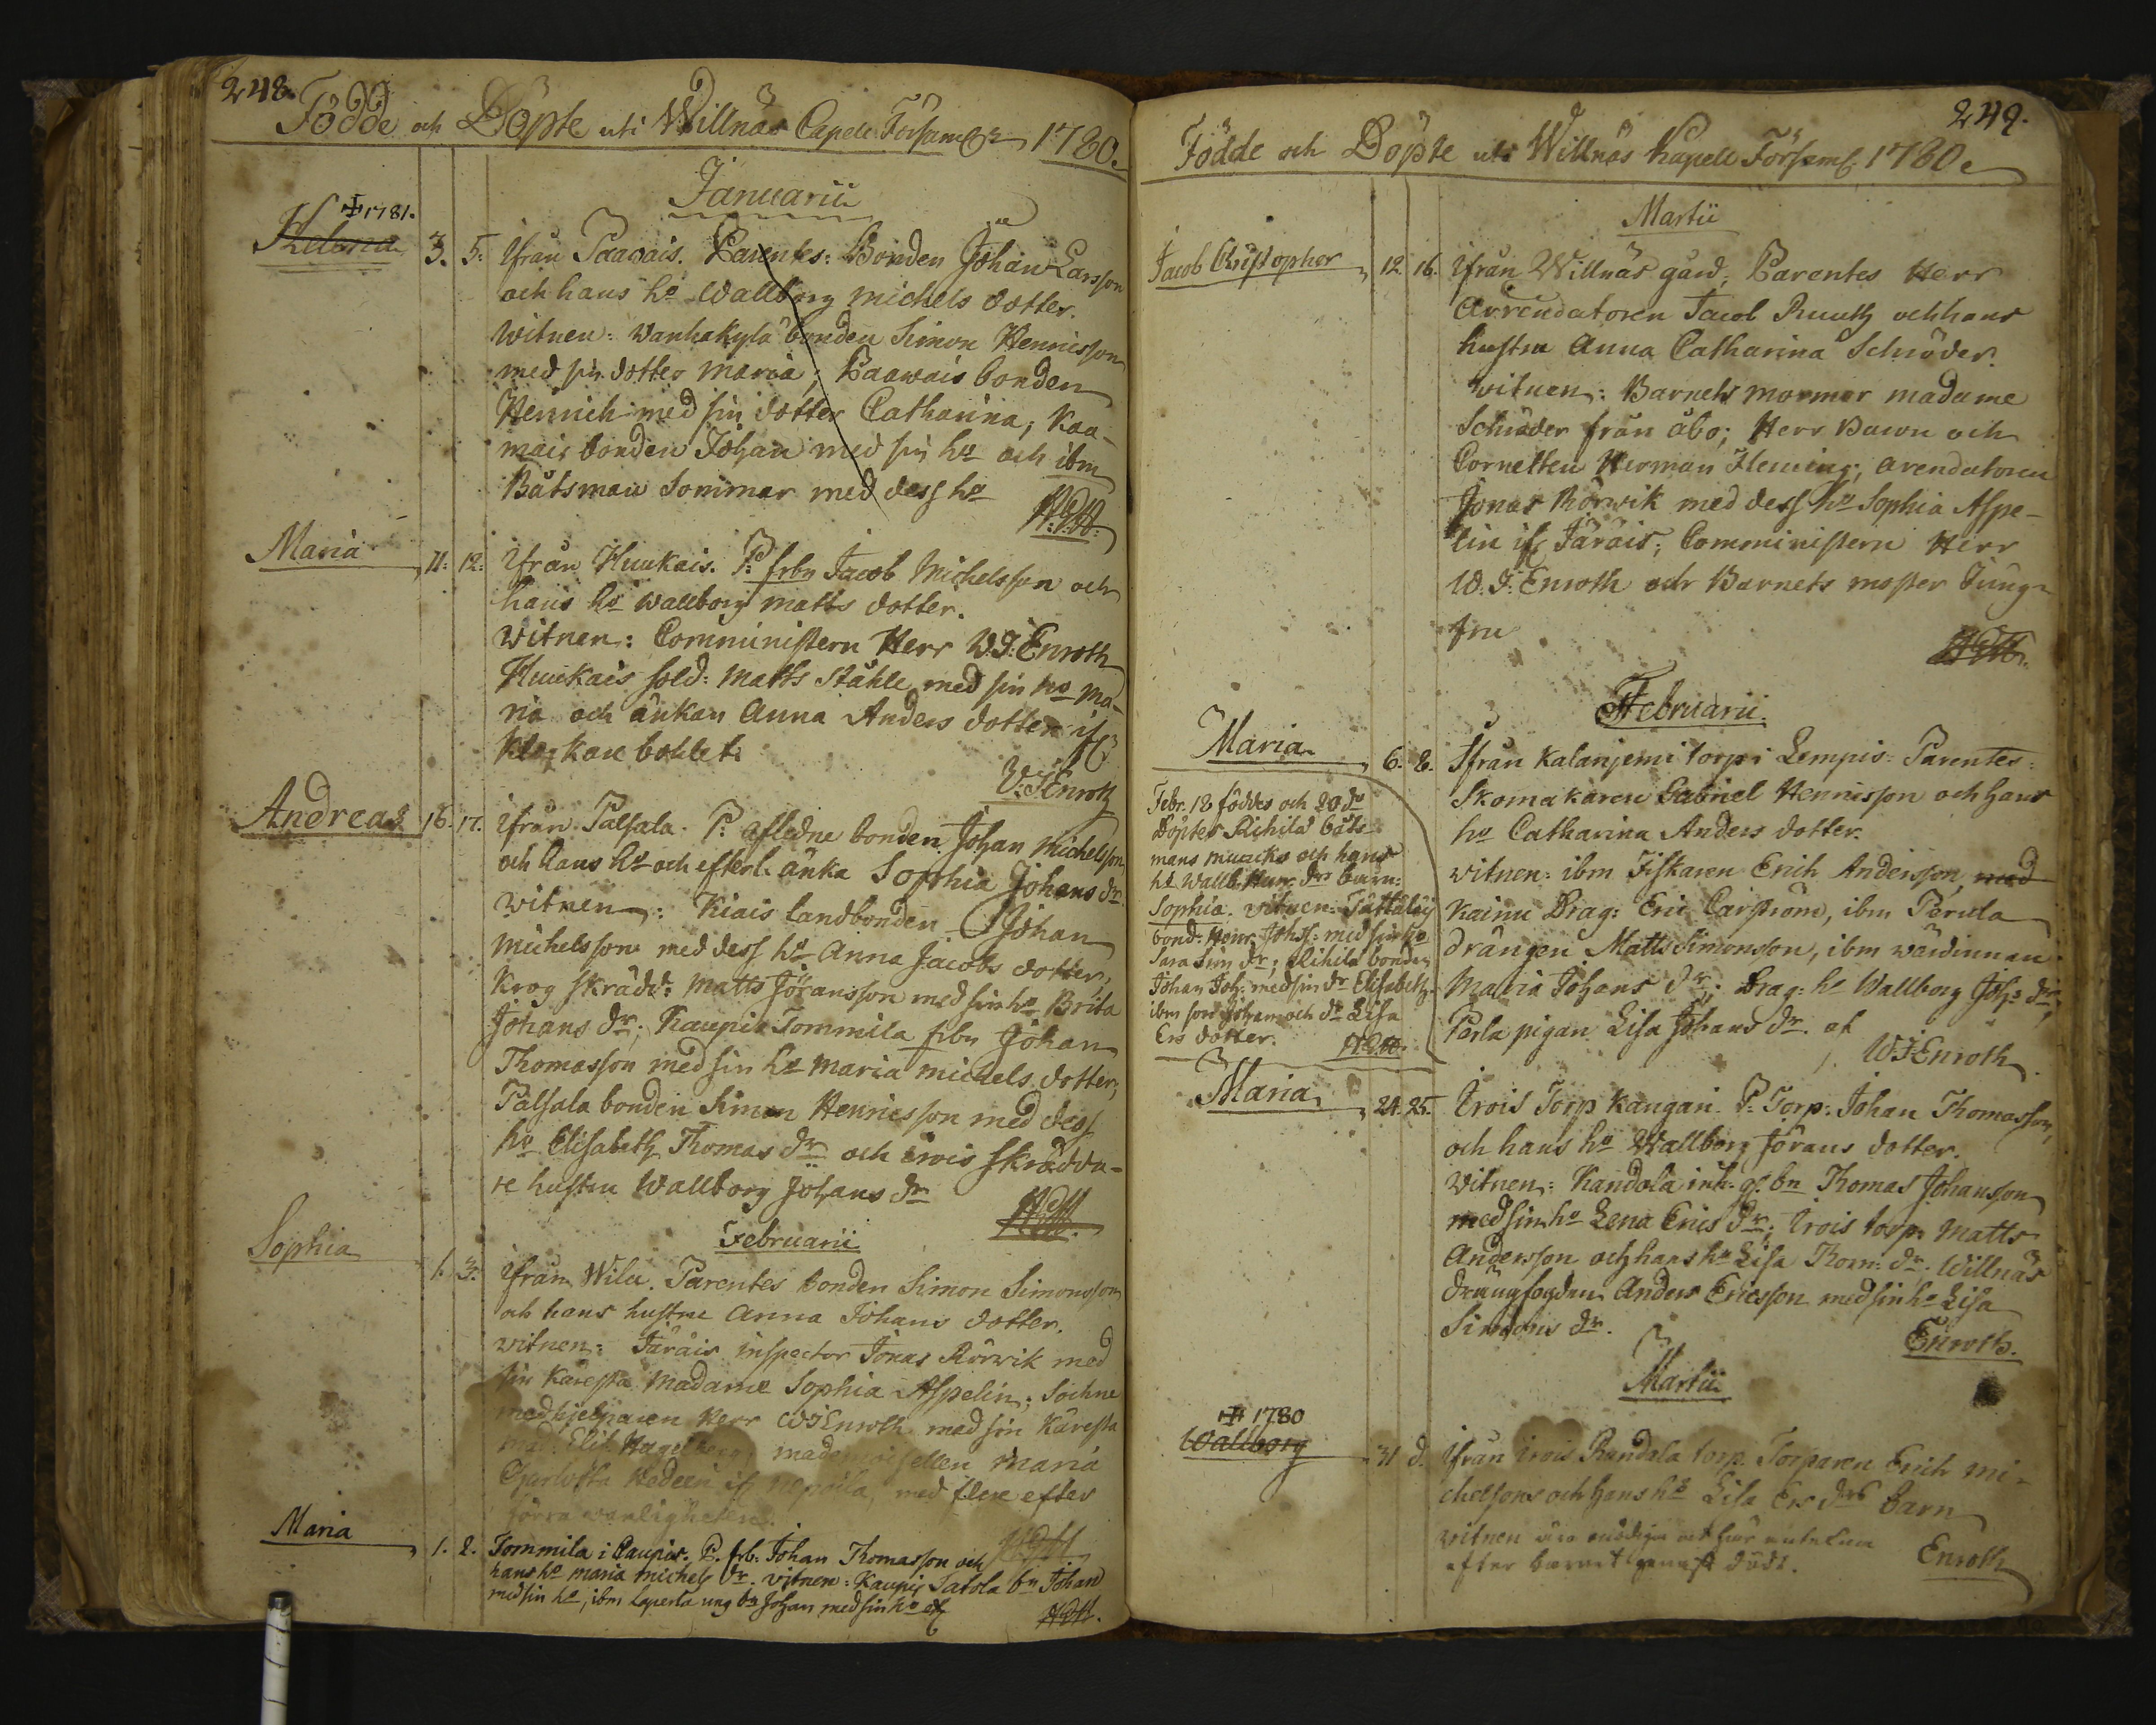 248.
Födde och Döpte uti Willnäs Capell Församl: 1780.
Januarii
✝ 1781.
Helena 3. 5. Ifrån Paavais. Parentes: Bonden Johan Larsson
och hans ho Wallborg Michels dotter.
Witnen: Wanhakylä bonden Simon Henricsson
med sin dotter Maria; Paawais bonden
Henrich med sin dotter Catharina; Kaa-
mais bonden Johan med sin ho och ibm
Båtsman Sommar med dess ho
Maria 11. 12. Ifrån Huukais. P: frbn Jacob Michelsson och
hans ho Wallborg Matts dotter.
Witnen: Comministern Herr W.J: Enroth
Huukais sold: Matts Ståhle med sin ho Ma-
ria och änkan Anna Anders dotter if:
Klockare bohlet.
W:J Enroth
Andreas 16. 17. Ifrån Palsala. P: afledne bonden Johan Michelsson
och hans ho och efterl. änka Sophia Johans dr.
Witnen: Kiais landbonden Johan
Michelsson med dess ho Anna Jacobs dotter;
Krog skrädd: Matts Jöransson med sin ho Brita
Johans dr; Kaupis Tommila frbn Johan
Thomasson med sin ho Maria Michels dotter;
Palsala bonden Simon Henricsson med dess
ho Elisabeth Thomas dr och Irois skrädda-
re hustru Wallborg Johans dr
Februarii
Sophia 1. 3. Ifrån Wilu. Parentes bonden Simon Simonsson
och hans hustru Anna Johans dotter.
witnen: Järäis inspector Jonas Rörwik med
sin Käresta Madame Sophia Aspelin; Sochne
medhjelparen Herr WJ Enroth med sin Käresta
Mad: Elis. Hagelberg, mademoisellen Maria
Charlotta Hedeen if: med flere efter
förra wanligheten.
Maria 1. 2. Tommila i Caupis. P. frb. Johan Thomasson och
hans ho Maria Michels dr. Vitnen: Kaupis Satola bn Johan
med sin ho, ibm Laperla ung bn Johan med sin ho
249.
Födde och Döpte uti Willnäs Kapell Församl: 1780.
Martii
Jacob Christopher 12. 16. Ifrån Willnäs gård; Parentes Herr
Arrendatoren Jacob Ruuth och hans
hustru Anna Catharina Schröder.
witnen: Barnets mormor madame
Schröder från åbo; Herr Baron och
Cornetten Herman Fleming; arendatoren
Jonas Rörwik med dess ho Sophia Aspe-
lin if: Järäis; Comministern Herr
W: J: Enroth och Barnets moster Jung-
fru
Februarii.
Maria 6. 8. Ifrån Kalanjemi torp i Lempis: Parentes:
Skomakaren Gabriel Henricsson och hans
ho Catharina Anders dotter.
witnen: ibm Fiskaren Erich Andersson, med
Kainu Drag: Eric Carström, ibm Perula
drängen Matts Simonsson, ibm wärdinnan
Maria Johans dr; Drag: ho Wallborg Johs dr;
Perla pigan Lisa Johans dr. et
WJ Enroth
Febr. 18 föddes och 20 do
döptes Rihilä båts-
mans Muuiks och hans
ho Wallb. Henr: drs barn:
Sophia. vitnen:
bond: Henr. Johss: med sin ho
Sara Sim dr; Rihilä bonden
Johan Joh: med sin dr Elisabeth
ibm son Johan och dr Lisa
Ers dotter.
Maria 24. 25. Irois Torp Kangari. P: Torp: Johan Thomasson,
och hans ho Wallborg Jörans dotter.
Witnen: Kandola inh: g: bn Thomas Johansson
med sin ho Lena Erics dr; Irois torp: Matts
Andersson och hans ho Lisa Thom: dr. Willnäs
drängfogden Anders Ericsson med sin ho Lisa
Simons dr.
Enroth.
Martii
✝ 1780
Wallborg 31 d. Ifrån Irois Randala torp. Torparen Erich Mi-
chelsons och hans ho Lisa Ers drs barn
witnen äro onödiga att här
efter barnet genast dödt.
Enroth